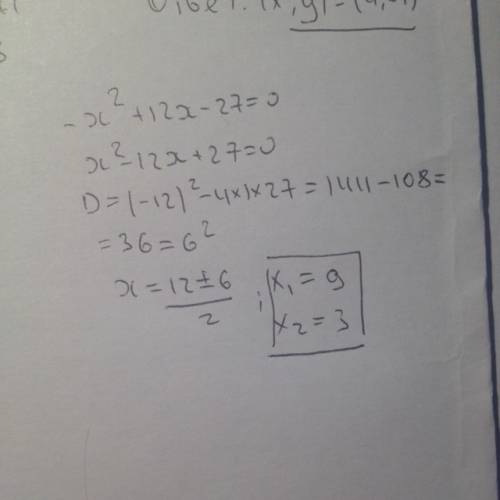 Ответ: (x; y) = (4;-1)
-x² + 12x - 27 = 0
x² - 12x + 27 = 0
D = (-12)² - 4×1×27 = 144 - 108 =
= 36 = 6²
x = 12 ± 6 / 2 ; x₁ = 9
x₂ = 3